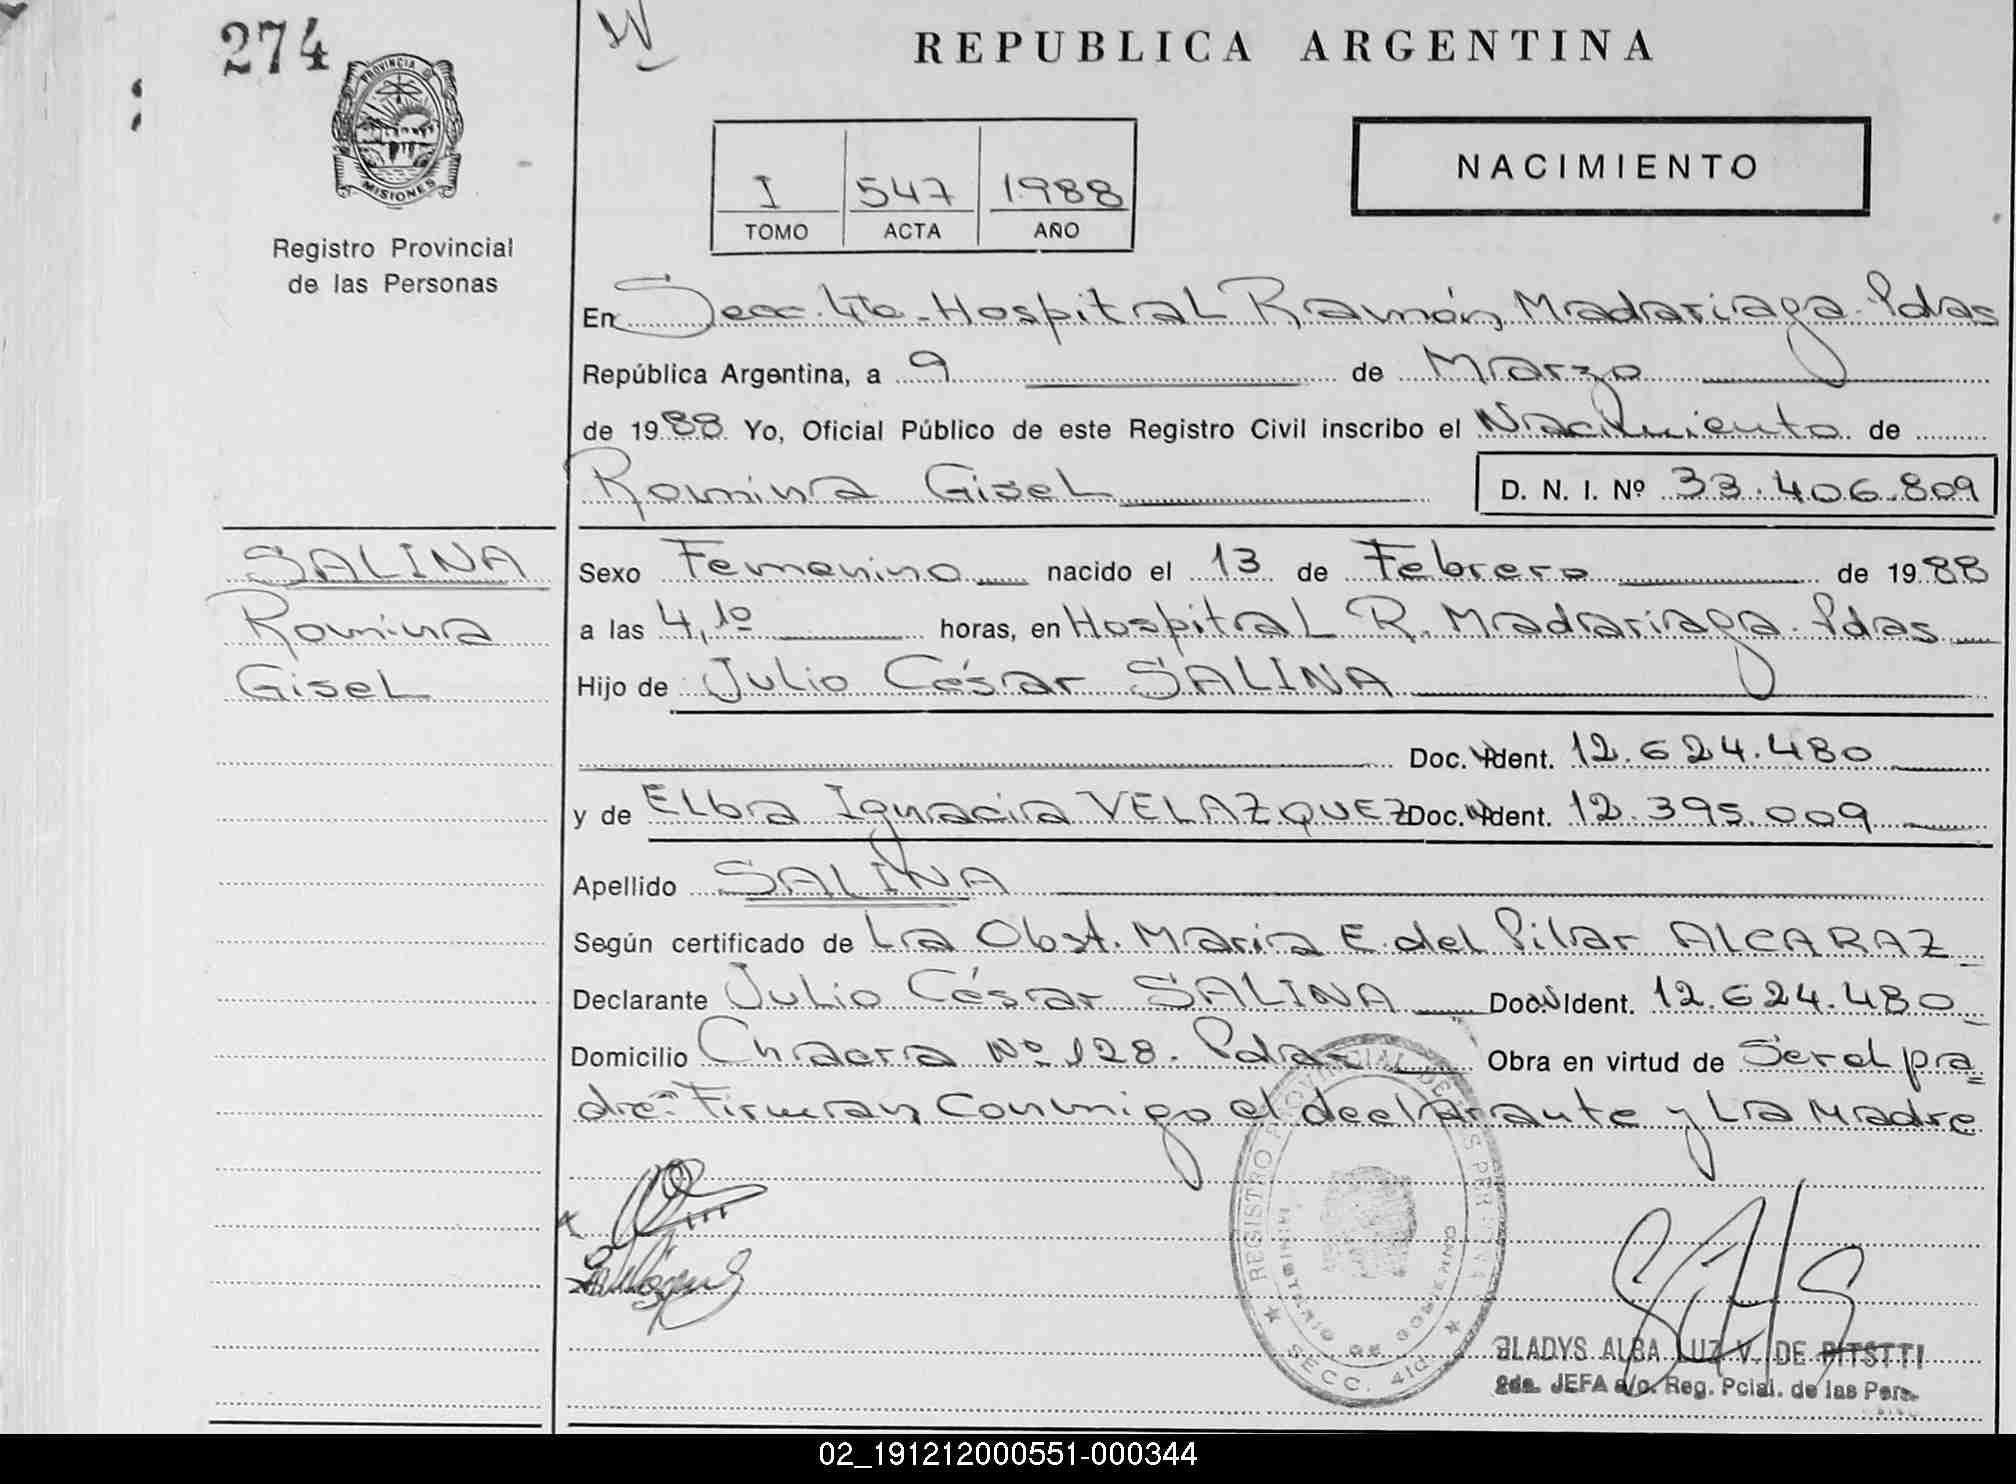 274
PROVINCIA DE
MISIONES
Registro Provincial
de las Personas
REPUBLICA ARGENTINA
I 547 1988
TOMO ACTA AÑO
NACIMIENTO
En Secc. 4ta. Hospital Ramón Madariaga. Pdas
República Argentina, a 9 de Marzo
de 1988 Yo, Oficial Público de este Registro Civil inscribo el Nacimiento de
Romina Gisel D. N. I. Nº 33.406.809
SALINA
Romina
Gisel
Sexo Femenino nacido el 13 de Febrero de 1988
a las 4,10 horas, en Hospital R. Madariaga. Pdas
Hijo de Julio César SALINA
Doc. Ident. 12.624.480
y de Elba Ignacia VELAZQUEZ Doc. Ident. 12.395.009
Apellido SALINA
Según certificado de La Obst. María E. del Pilar ALCARAZ
Declarante Julio César SALINA Doc. Ident. 12.624.480
Domicilio Chacra Nº 128. Pdas Obra en virtud de Ser el pa=
dre: Firman conmigo el declarante y La Madre
REGISTRO PROVINCIAL DE LAS PERSONAS
MINISTERIO DE GOBIERNO
SECC. 4ta
GLADYS ALBA LUZ V. DE PITSTTI
2da. JEFA a/c. Reg. Pcial. de las Pers.
02_191212000551-000344